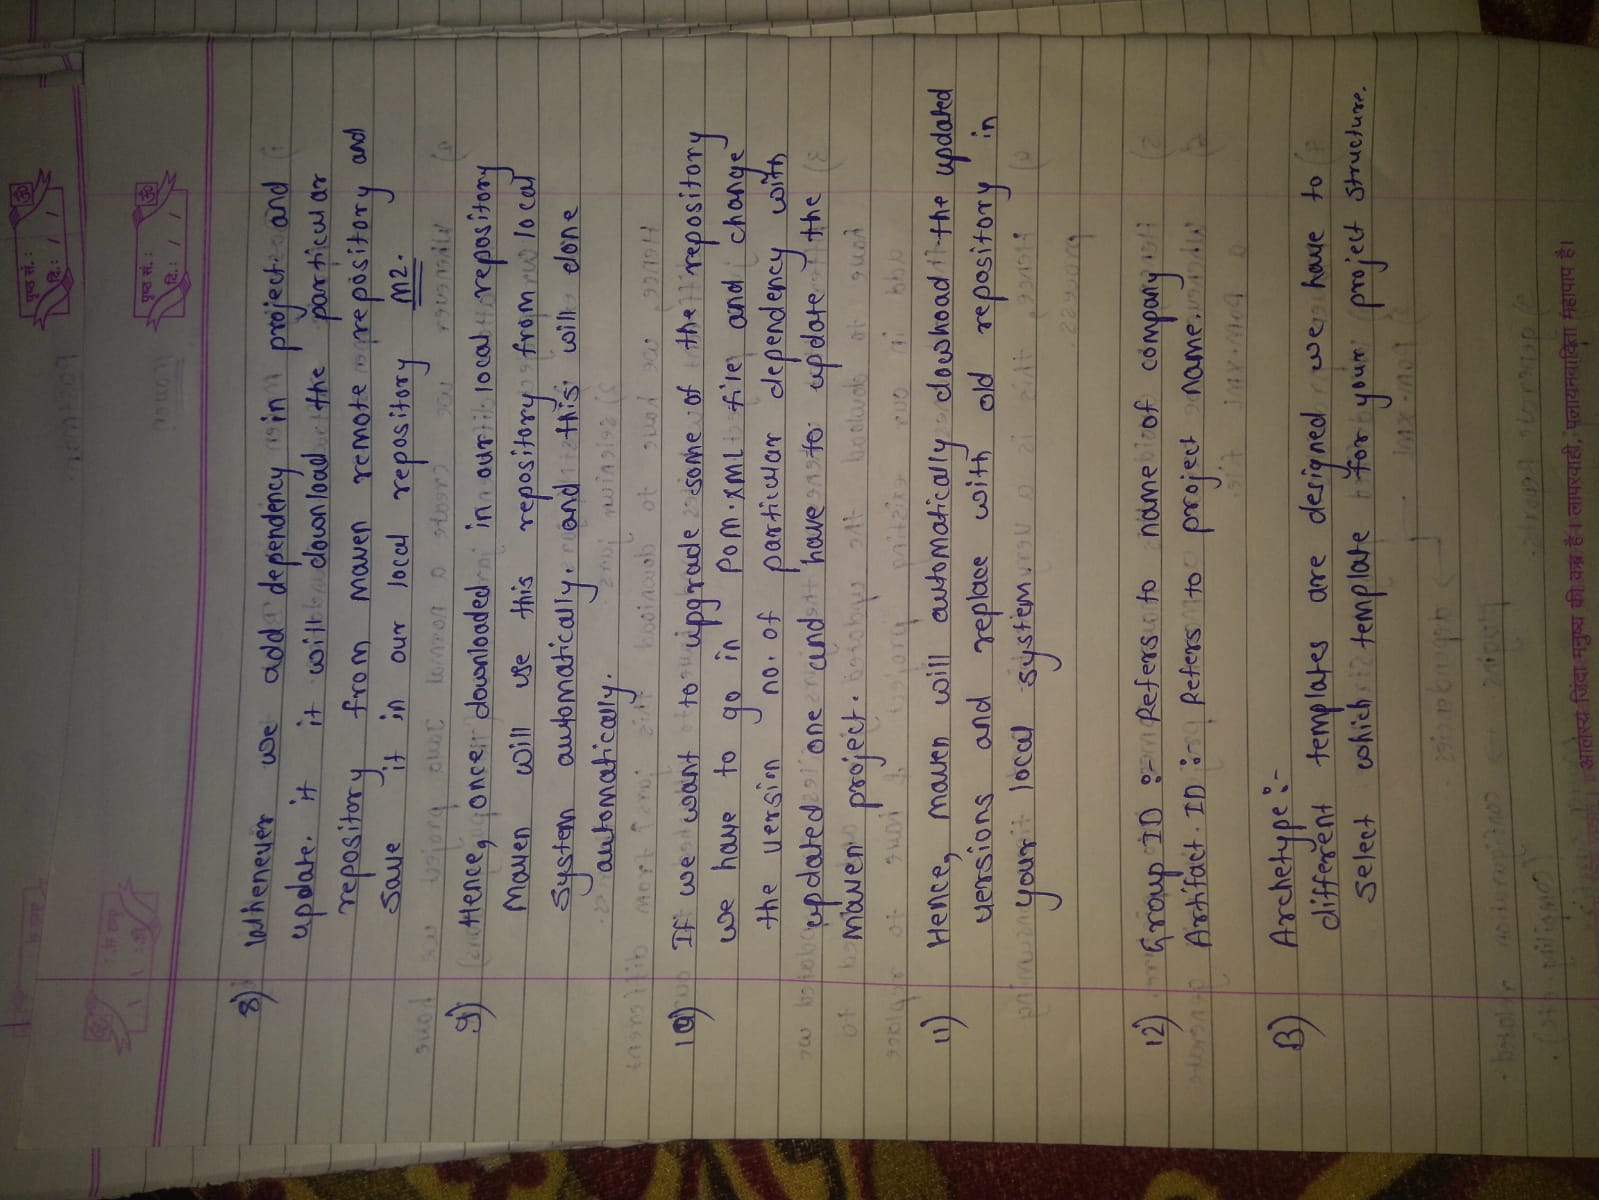 पृष्ठ सं. :
दि.: / /
पृष्ठ सं. :
दि.: / /
8) Whenever we add dependency in project. and
update. it it will download the particular
repository from Maven remote repository and
save it in our local repository M2.
9) Hence, once downloaded in our local repository
Maven will use this repository from local
system automatically. and this will done
automatically.
10) If we want to upgrade some of the repository
we have to go in POM.XML file and change
the version no. of particular dependency with
updated one and have to update the
Maven project.
11) Hence, maven will automatically download the updated
versions and replace with old repository in
your local system.
12) Group ID :- Refers to name of company
Artifact. ID :- Refers to project name.
13) Archetype :-
different templates are designed we have to
select which template for your project structure.
आलस्य जिंदा मनुष्य की कब्र है। लापरवाही, पलायनवादिता महापाप है।